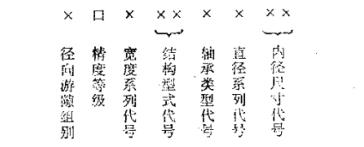 × 口 × ×× × × ××
径向游隙组别
精度等级
宽度系列代号
结构型式代号
轴承类型代号
直径系列代号
内径尺寸代号